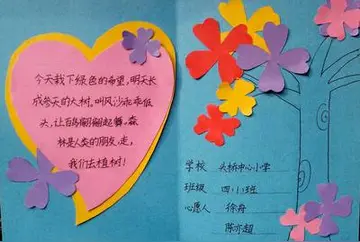 今天栽下绿色的希望,明天长
成参天的大树。叫风沙乖乖低
头,让百鸟翩翩起舞。森
林是人类的朋友,走,
我们去植树!
学校 头桥中心小学
班级 四(3)班
心愿人 徐舟
陈亦超